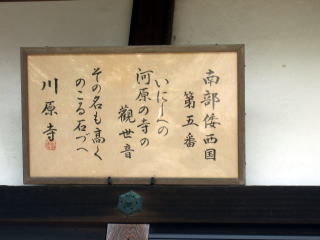 南部倭西国
第五番
いにしへの
河原の寺の
觀世音
その名も高く
のこる石づへ
川原寺